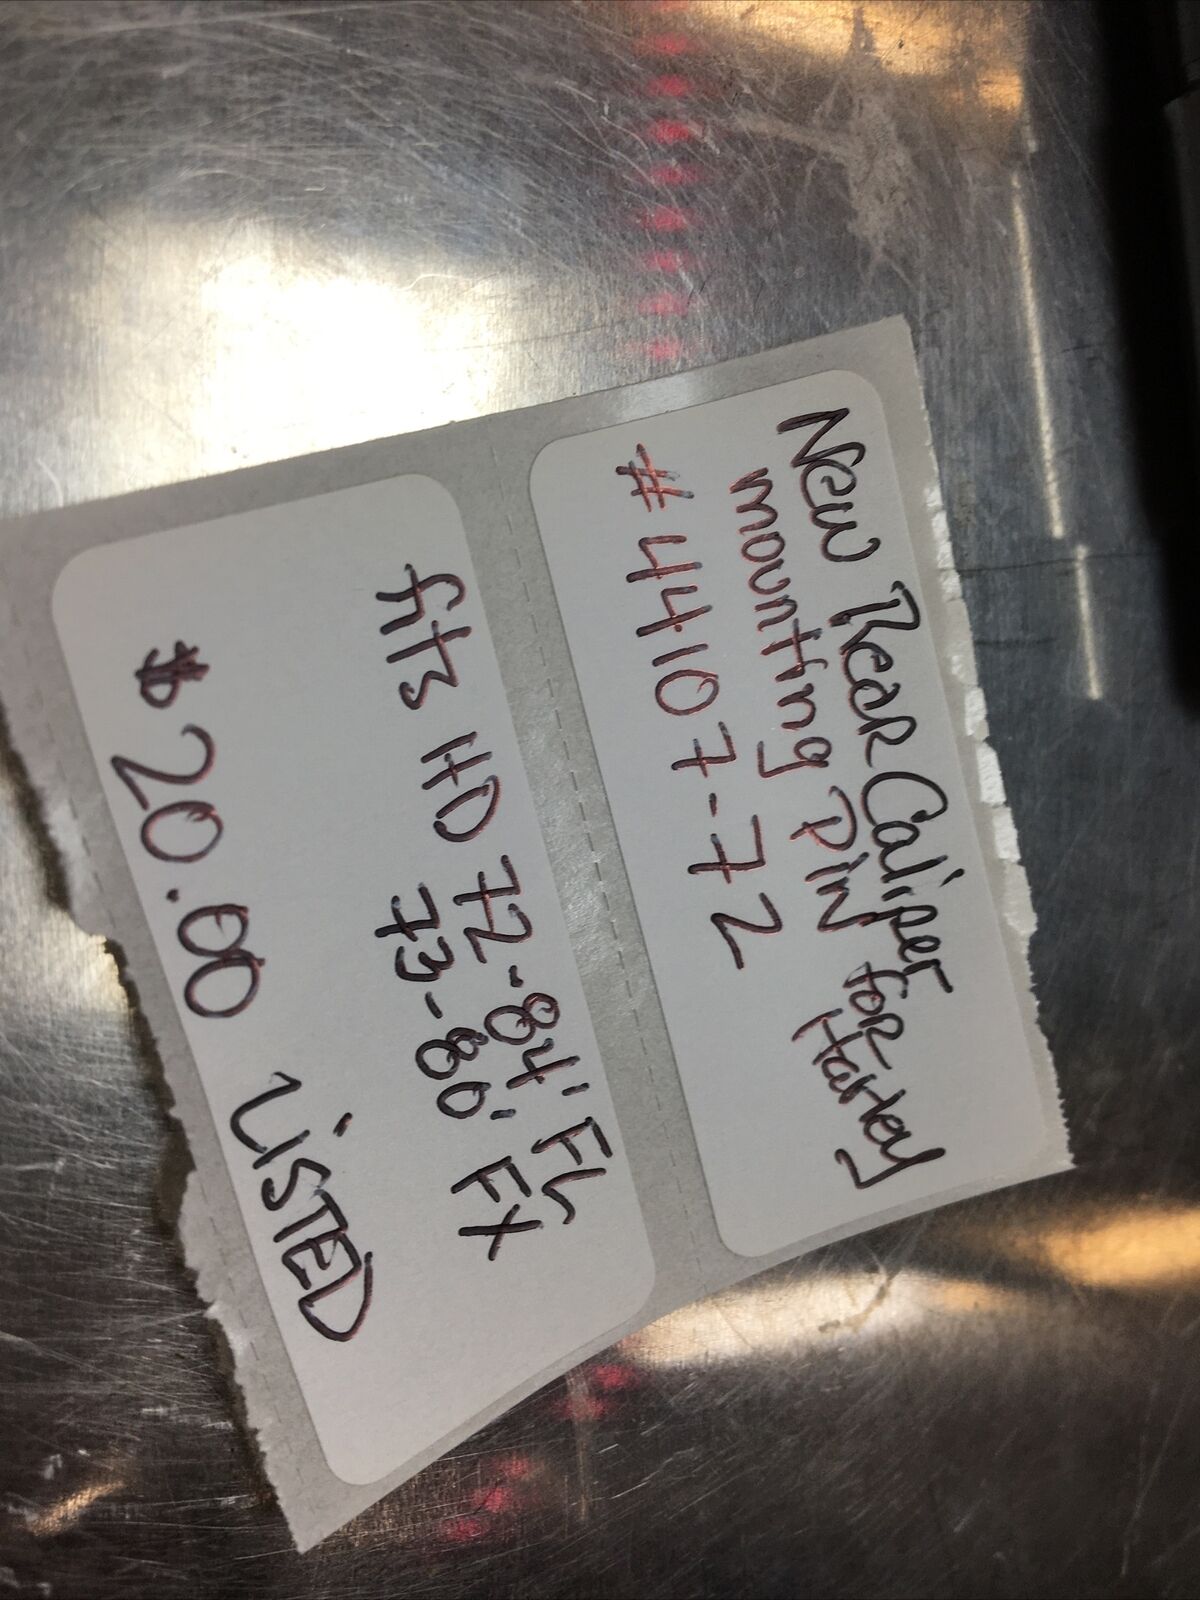 New Rear Caliper
mounting Pin for Harley
# 44107-72
fits HD 72-84' FL
73-80' FX
$20.00 LiSTED